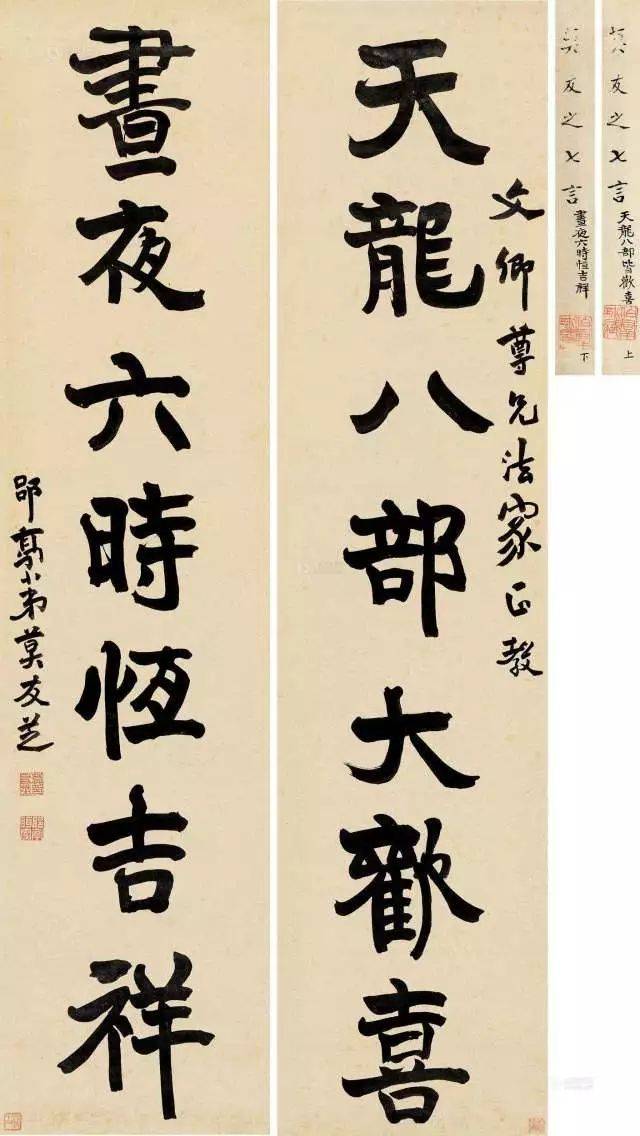 友之七言 天龍八部皆歡喜 上
友之七言 晝夜六時恒吉祥 下
文卿尊兄法家正教
天龍八部大歡喜
晝夜六時恆吉祥
郘亭小弟莫友芝